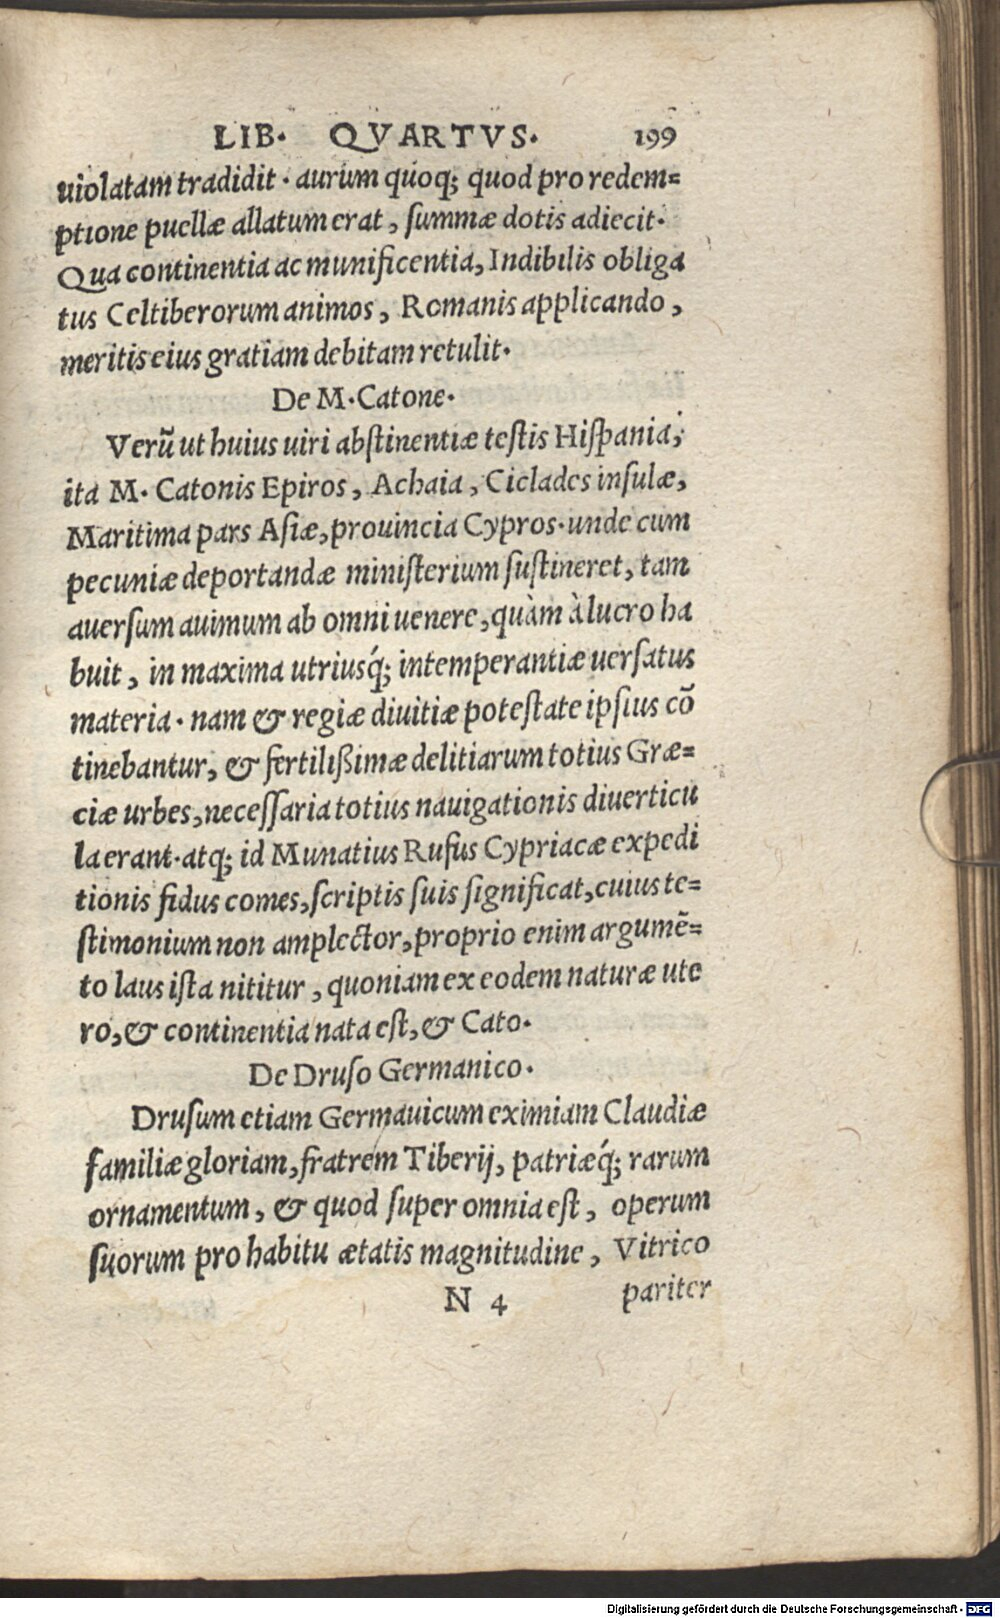 LIB. QVARTVS. 199
uiolatam tradidit. aurum quoq; quod pro redem=
ptione puellæ allatum erat, ſummæ dotis adiecit.
Qua continentia ac munificentia, Indibilis obliga
tus Celtiberorum animos, Romanis applicando,
meritis eius gratiam debitam retulit.
De M. Catone.
Verũ ut huius uiri abſtinentiæ teſtis Hiſpania,
ita M. Catonis Epiros, Achaia, Ciclades inſulæ,
Maritima pars Aſiæ, prouincia Cypros. unde cum
pecuniæ deportandæ miniſterium ſuſtineret, tam
auerſum auimum ab omni uenere, quàm à lucro ha
buit, in maxima utriusq́; intemperantiæ uerſatus
materia. nam & regiæ diuitiæ poteſtate ipſius cõ
tinebantur, & fertilißimæ delitiarum totius Græ=
ciæ urbes, neceſſaria totius nauigationis diuerticu
la erant. atq; id Munatius Rufus Cypriacæ expedi
tionis fidus comes, ſcriptis ſuis ſignificat, cuius te=
ſtimonium non amplector, proprio enim argumẽ=
to laus iſta nititur, quoniam ex eodem naturæ ute
ro, & continentia nata eſt, & Cato.
De Druſo Germanico.
Druſum etiam Germauicum eximiam Claudiæ
familiæ gloriam, fratrem Tiberij, patriæq́; rarum
ornamentum, & quod ſuper omnia eſt, operum
ſuorum pro habitu ætatis magnitudine, Vitrico
N 4 pariter
Digitalisierung gefördert durch die Deutsche Forschungsgemeinschaft - DFG